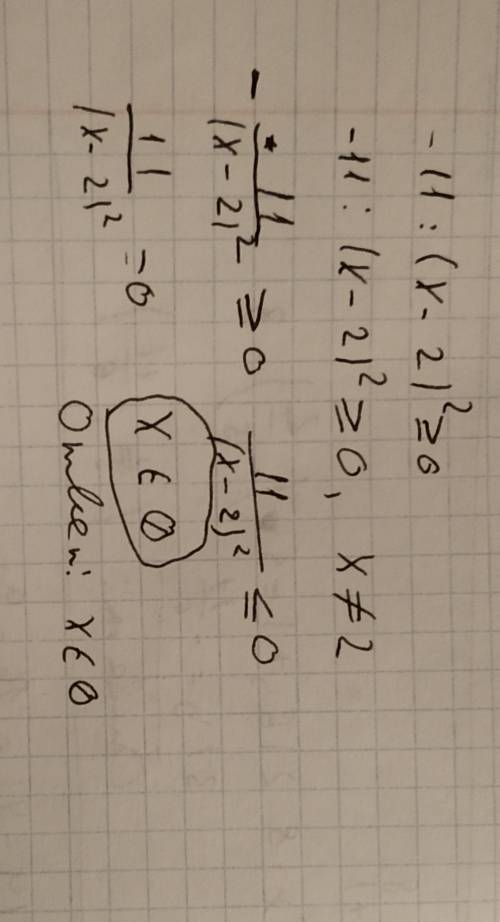 -11 : (x - 2)² ≥ 0
-11 : (x - 2)² ≥ 0, x ≠ 2
- 11/(x - 2)² ≥ 0 11/(x - 2)² ≤ 0
11/(x - 2)² = 0 x ∈ Ø
Ответ: x ∈ Ø